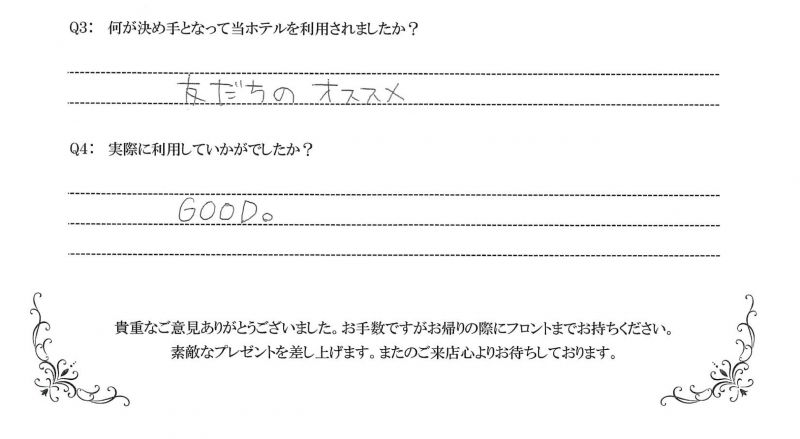 Q3： 何が決め手となって当ホテルを利用されましたか？
友だちの オススメ
Q4： 実際に利用していかがでしたか？
GOOD。
貴重なご意見ありがとうございました。お手数ですがお帰りの際にフロントまでお持ちください。
素敵なプレゼントを差し上げます。またのご来店心よりお待ちしております。